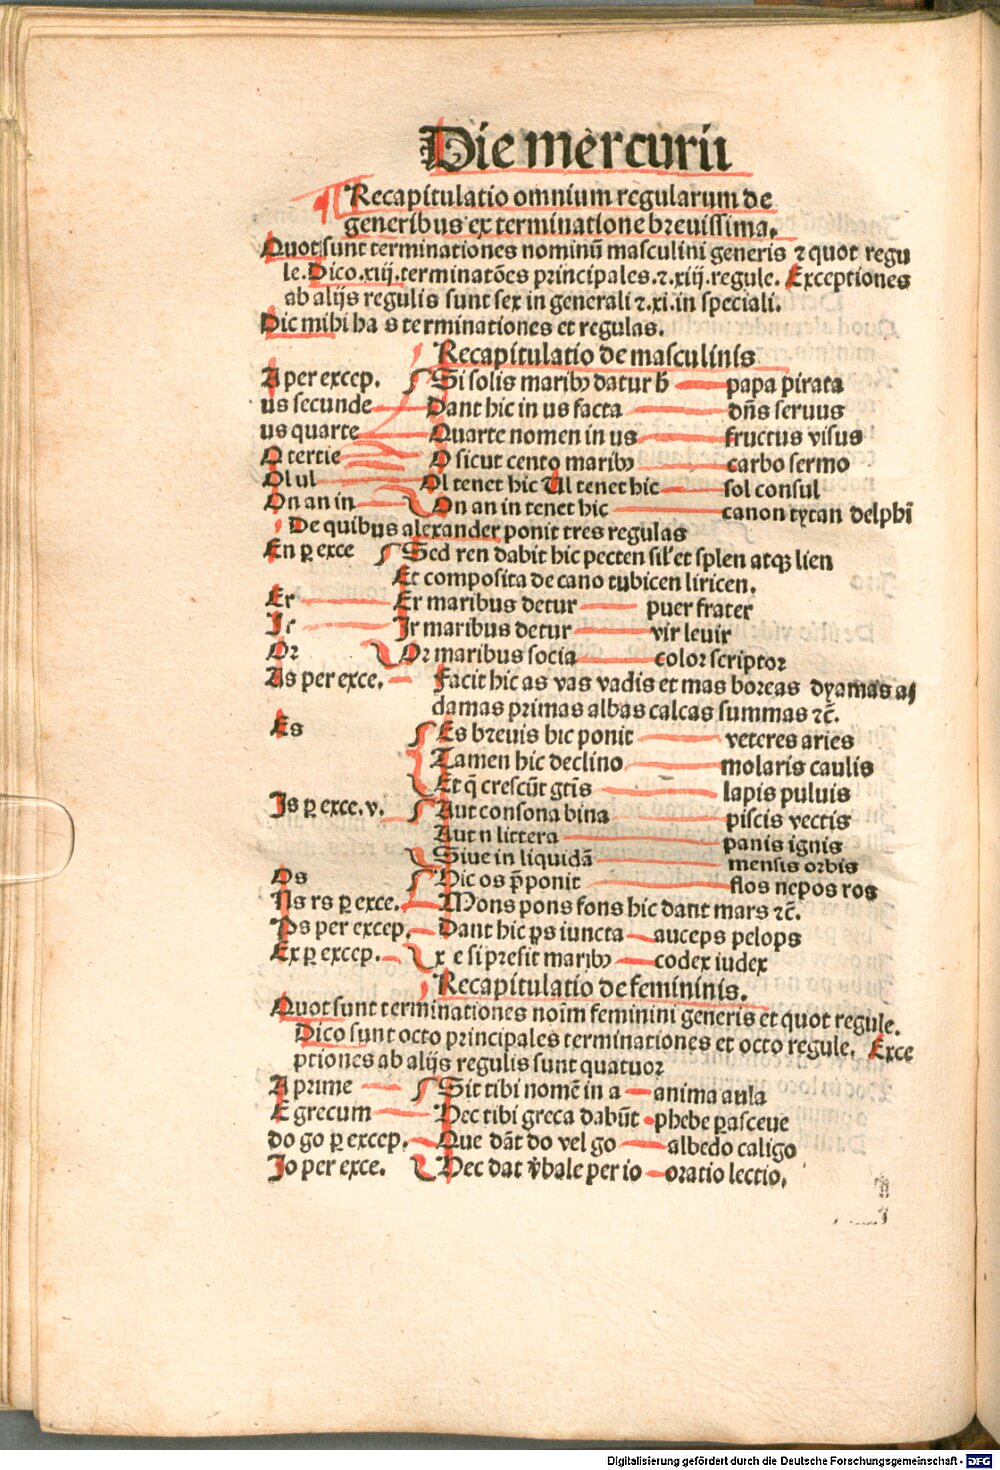 Die mercurii
Recapitulatio omnium regularum de
generibus ex terminatione breuissima.
Quot sunt terminationes nominū masculini generis ⁊ quot regu
le. Dico .xiij. terminatōes principales .⁊. xiij. regule. Exceptiones
ab alijs regulis sunt sex in generali ⁊ .xi. in speciali.
Dic mihi ha s terminationes et regulas.
Recapitulatio de masculinis
A per excep. Si solis maribꝫ datur h̄ papa pirata
us secunde Dant hic in us facta dn̄s seruus
us quarte Quarte nomen in us fructus visus
O tertie O sicut cento maribꝫ carbo sermo
Ol ul Ol tenet hic Ul tenet hic sol consul
On an in On an in tenet hic canon tytan delphī
De quibus alexander ponit tres regulas
En ꝑ exce Sed ren dabit hic pecten sil'et splen atqꝫ lien
Et composita de cano tubicen liricen.
Er Er maribus detur puer frater
Ir Ir maribus detur vir leuir
Or Or maribus socia color scriptor
As per exce. Facit hic as vas vadis et mas boreas dyamas a
damas primas albas calcas summas ⁊c̄.
Es Es breuis hic ponit veteres aries
Tamen hic declino molaris caulis
Et q̄ crescūt gtīs lapis puluis
Is ꝑ exce. v. Aut consona bina piscis vectis
Aut n littera panis ignis
Siue in liquidā mensis orbis
Os Dic os p̄ponit flos nepos ros
Ns rs ꝑ exce. Mons pons fons hic dant mars ⁊c̄.
Ps per excep. Dant hic ps iuncta auceps pelops
Ex ꝑ excep. x e si presit maribꝫ codex iudex
Recapitulatio de femininis.
Quot sunt terminationes noīm feminini generis et quot regule.
Dico sunt octo principales terminationes et octo regule. Exce
ptiones ab alijs regulis sunt quatuor
A prime Sit tibi nomē in a anima aula
E grecum Hec tibi greca dabūt phebe ꝑasceue
do go ꝑ excep. Que dāt do vel go albedo caligo
Io per exce. Hec dat v̄bale per io oratio lectio.
Digitalisierung gefördert durch die Deutsche Forschungsgemeinschaft - DFG